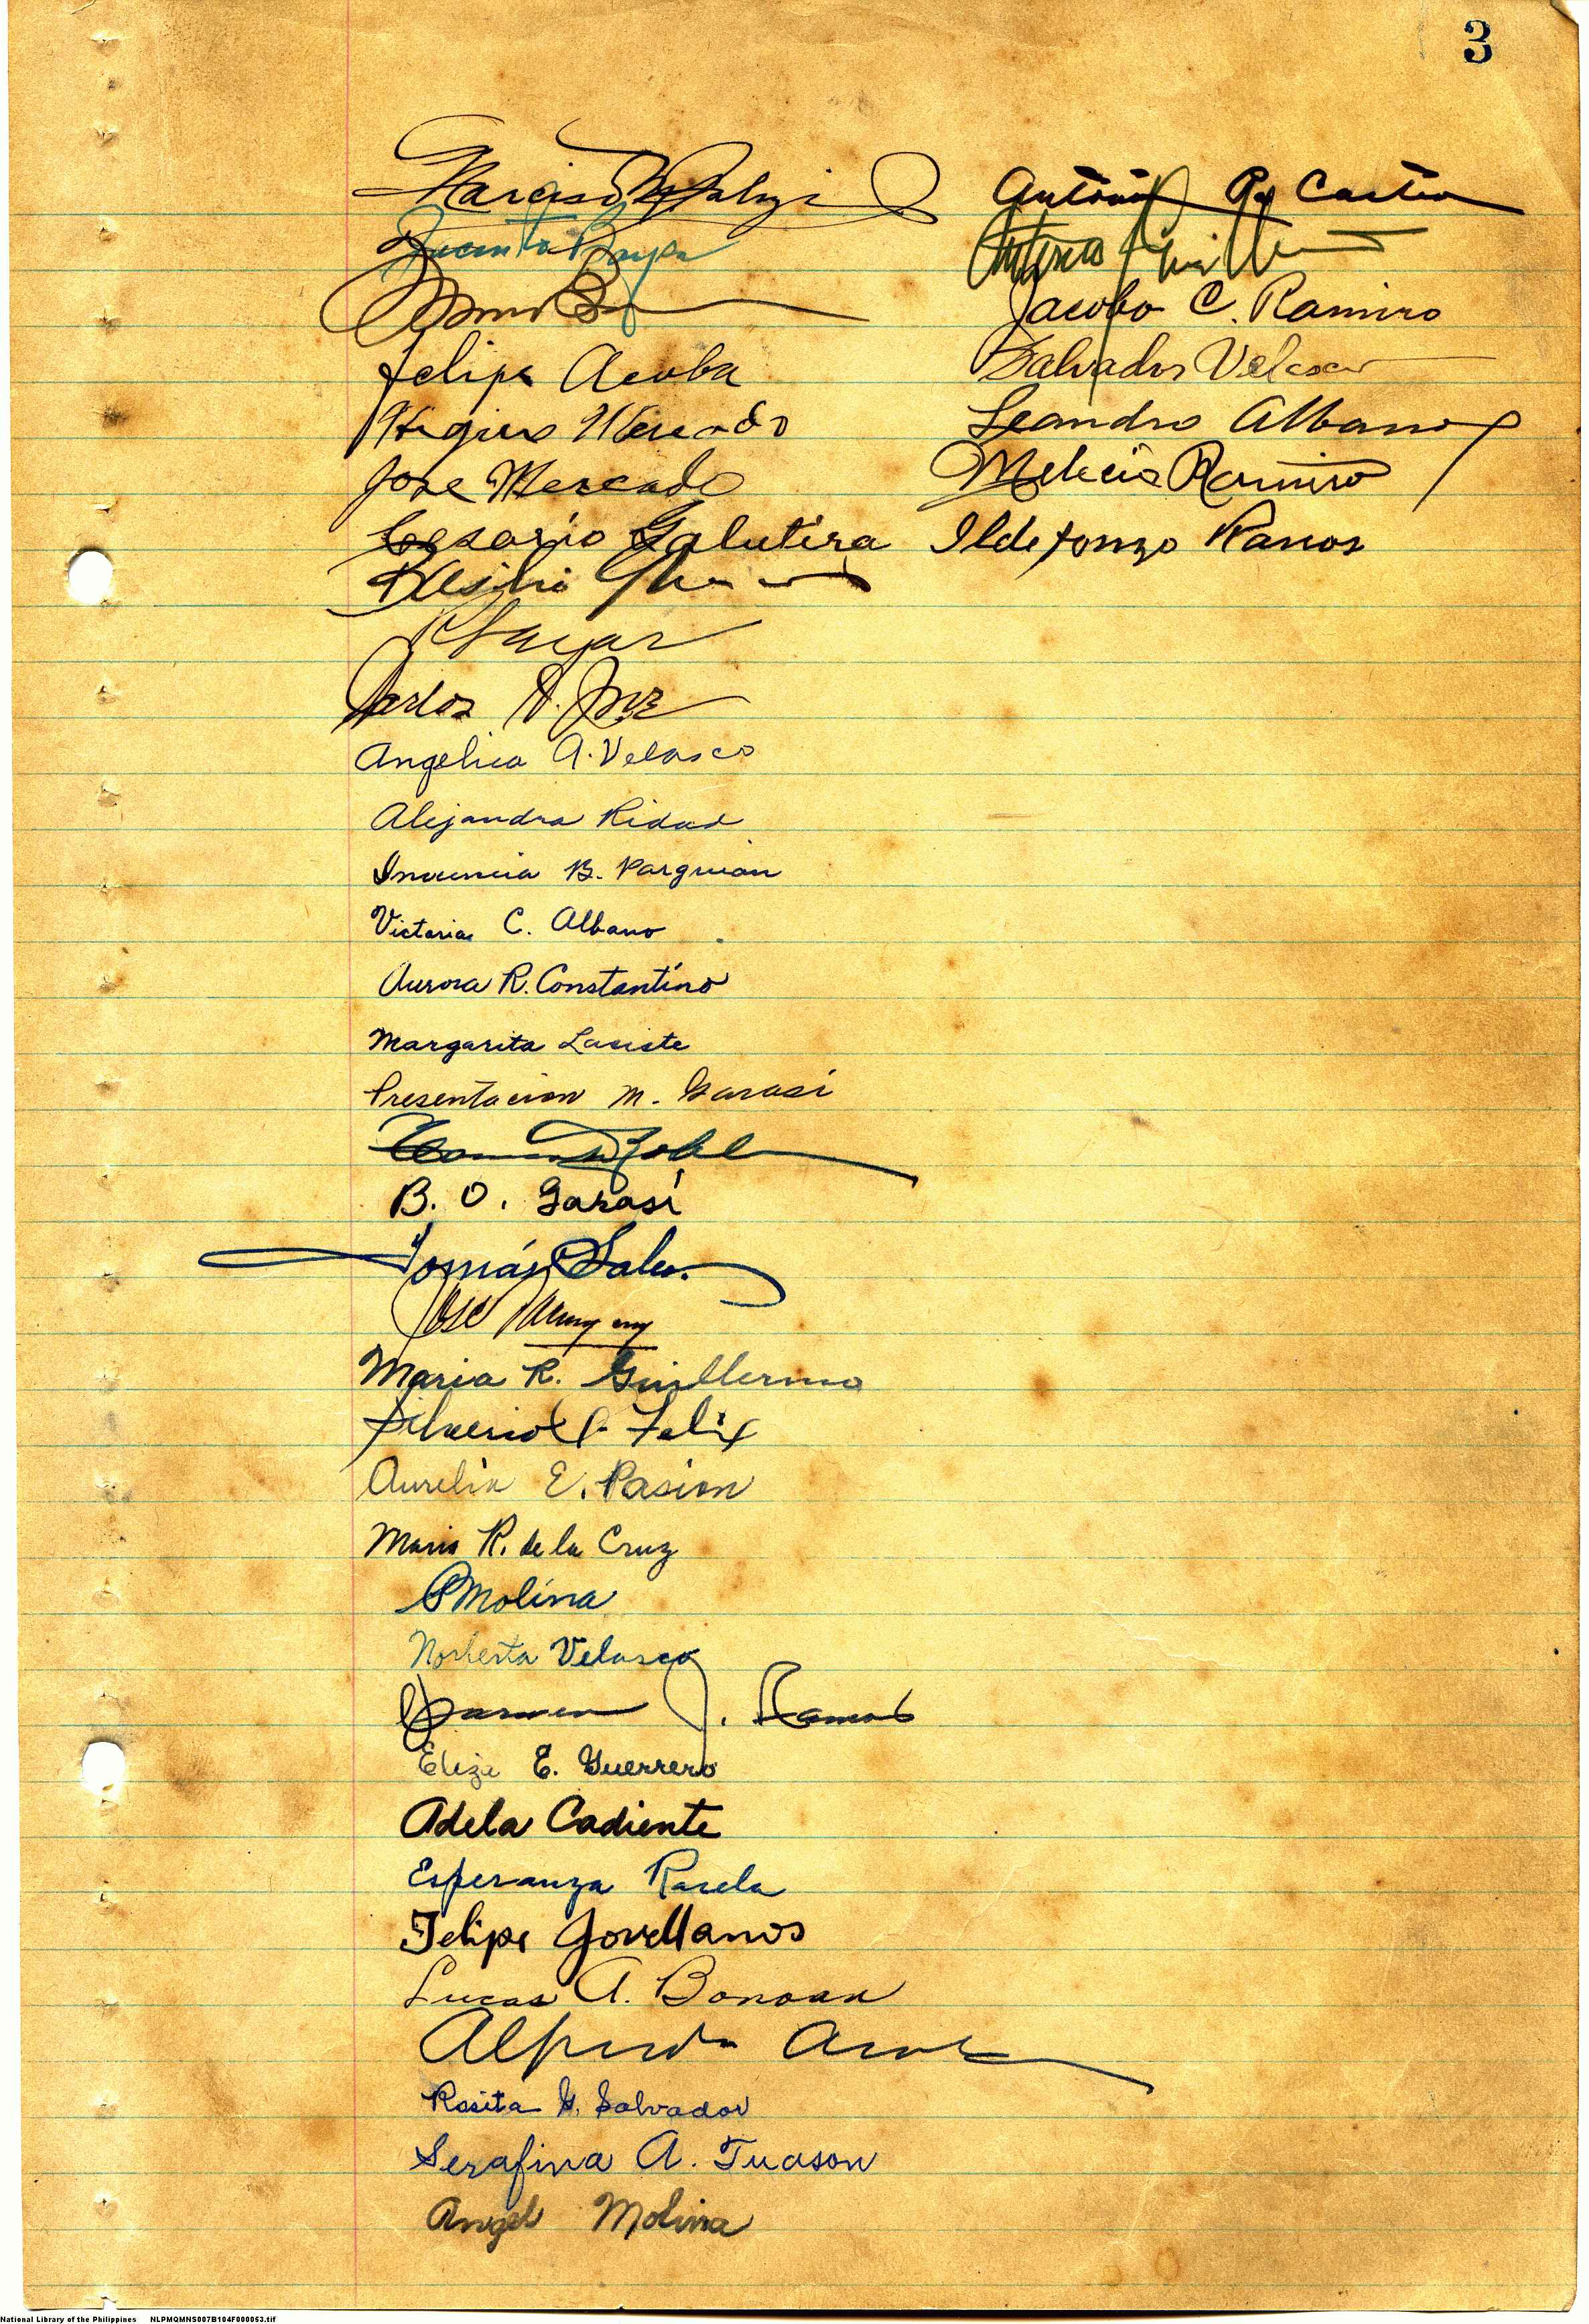 3
Narciso
Jacinto
Felipe Acoba
Higino Mercado
Jose Mercado
Cesario Galutira
Carlos A.
Angelica A. Velasco
Alejandra Ridad
Inocencia B. Parguian
Victoria C. Albano
Aurora R. Constantino
Margarita Laciste
Presentacion M. Garasi
B. O. Garasi
Tomás
Jose
Maria R. Guillermo
Silverio P. Felix
Aurelia E. Pasion
Maria R. de la Cruz
PMolina
Norberta Velasco
Carmen J. Ramos
Eliza E. Guerrero
Adela Cadiente
Esperanza Racela
Felipe Jovellanos
Lucas A. Bonoan
Alfredo
Rosita G. Salvador
Serafina A. Tuason
Angel Molina
Antonio Castro
Jacobo C. Ramiro
Salvador Velasco
Leandro Albano
Melecio Ramiro
Ildefonzo Ramos
National Library of the Philippines NLPMQMNS007B104F000053.tif